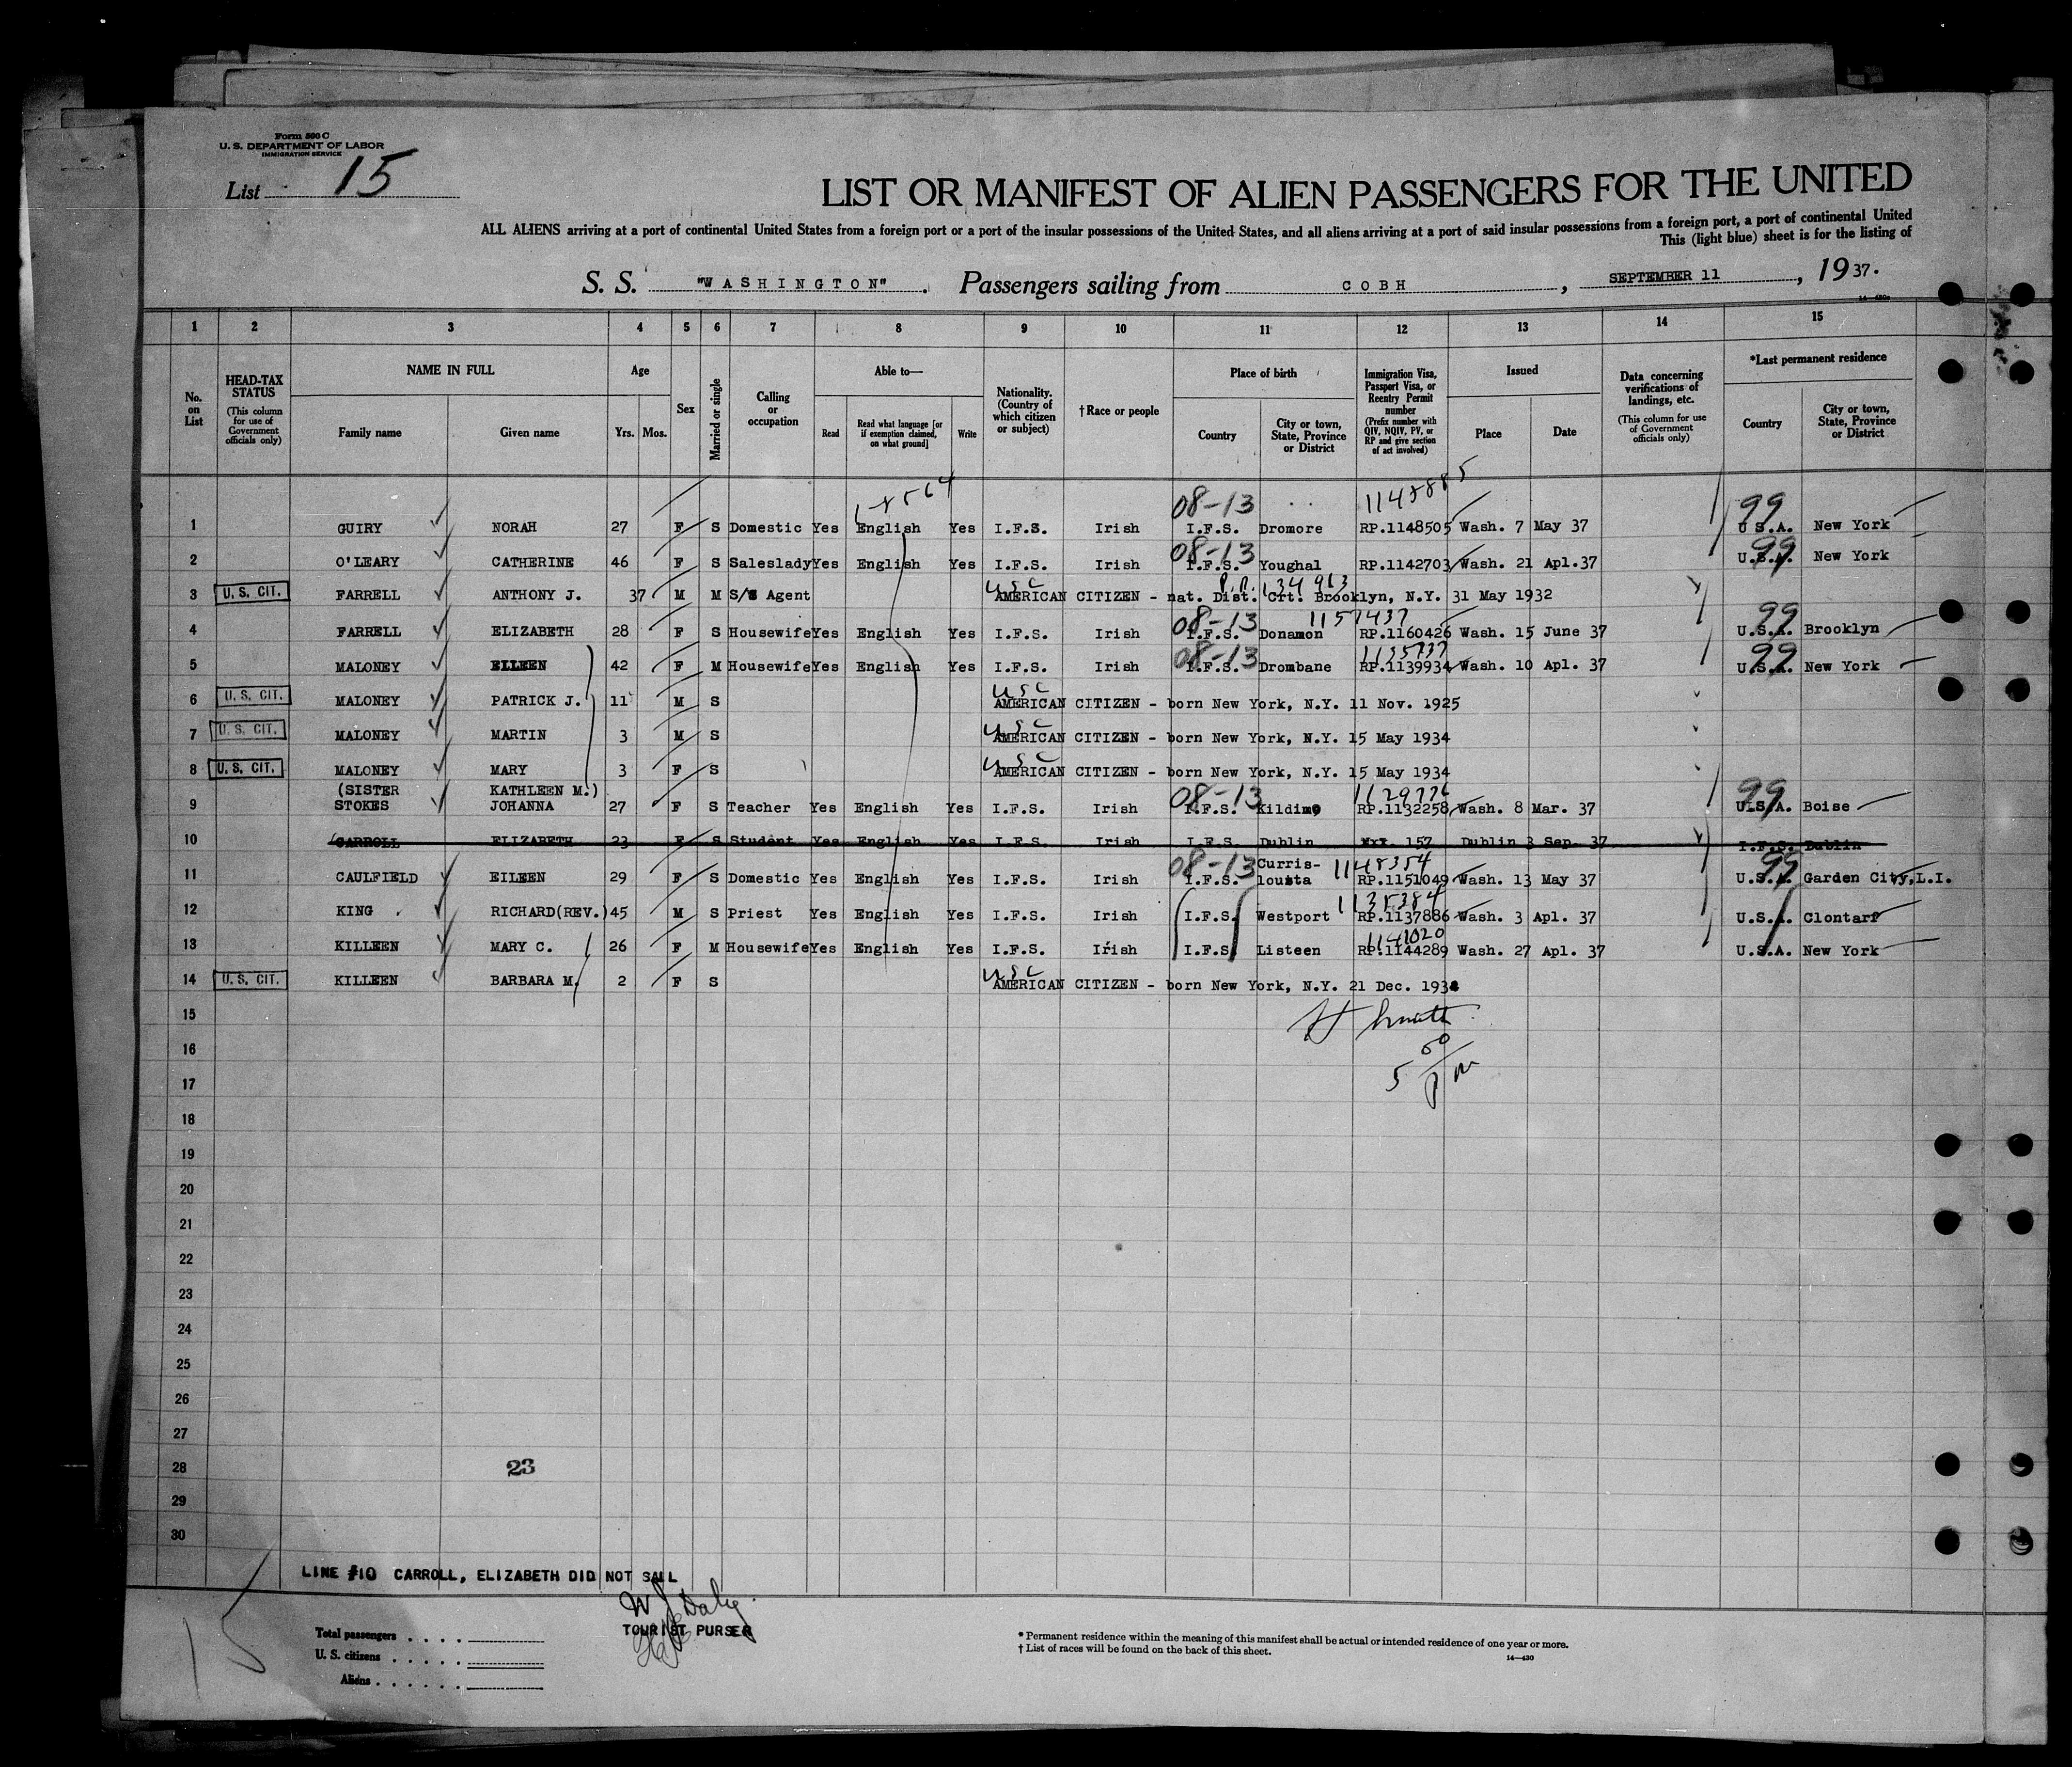 Form 500 C
U. S. DEPARTMENT OF LABOR
IMMIGRATION SERVICE
List 15
LIST OR MANIFEST OF ALIEN PASSENGERS FOR THE UNITED
ALL ALIENS arriving at a port of continental United States from a foreign port or a port of the insular possessions of the United States, and all aliens arriving at a port of said insular possessions from a foreign port, a port of continental United
This (light blue) sheet is for the listing of
S. S. "WASHINGTON". Passengers sailing from COBH, SEPTEMBER 11, 1937.
1 2 3 4 5 6 7 8 9 10 11 12 13 14 15
No. on List
HEAD-TAX STATUS (This column for use of Government officials only)
NAME IN FULL Family name Given name
Age Yrs. Mos.
Sex
Married or single
Calling or occupation
Able to— Read Read what language [or if exemption claimed, on what ground] Write
Nationality. (Country of which citizen or subject)
†Race or people
Place of birth Country City or town, State, Province or District
Immigration Visa, Passport Visa, or Reentry Permit number (Prefix number with QIV, NQIV, PV, or RP and give section of act involved)
Issued Place Date
Data concerning verifications of landings, etc. (This column for use of Government officials only)
*Last permanent residence Country City or town, State, Province or District
08-13 99
1 GUIRY NORAH 27 F S Domestic Yes English Yes I.F.S. Irish I.F.S. Dromore RP.1148505 Wash. 7 May 37 U.S.A. New York
08-13 99
2 O'LEARY CATHERINE 46 F S Saleslady Yes English Yes I.F.S. Irish I.F.S. Youghal RP.1142703 Wash. 21 Apl.37 U.S.A. New York
USC 134913
3 U. S. CIT. FARRELL ANTHONY J. 37 M M S/S Agent AMERICAN CITIZEN - nat. Dist. Crt. Brooklyn, N.Y. 31 May 1932
08-13 1157437 99
4 FARRELL ELIZABETH 28 F S Housewife Yes English Yes I.F.S. Irish I.F.S. Donamon RP.1160426 Wash. 15 June 37 U.S.A. Brooklyn
08-13 99
5 MALONEY EILEEN 42 F M Housewife Yes English Yes I.F.S. Irish I.F.S. Drombane RP.1139934 Wash. 10 Apl. 37 U.S.A. New York
USC
6 U. S. CIT. MALONEY PATRICK J. 11 M S AMERICAN CITIZEN - born New York, N.Y. 11 Nov. 1925
USC
7 U. S. CIT. MALONEY MARTIN 3 M S AMERICAN CITIZEN - born New York, N.Y. 15 May 1934
USC
8 U. S. CIT. MALONEY MARY 3 F S AMERICAN CITIZEN - born New York, N.Y. 15 May 1934
(SISTER KATHLEEN M.) 08-13 99
9 STOKES JOHANNA 27 F S Teacher Yes English Yes I.F.S. Irish I.F.S. Kildimo RP.1132258 Wash. 8 Mar. 37 U.S.A. Boise
10 CARROLL ELIZABETH 23 F S Student Yes English Yes I.F.S. Irish I.F.S. Dublin 157 Dublin 3 Sep. 37 I.F.S. Dublin
08-13 Curris- 1148354 99
11 CAULFIELD EILEEN 29 F S Domestic Yes English Yes I.F.S. Irish I.F.S. loutta RP.1151049 Wash. 13 May 37 U.S.A. Garden City,L.I.
1135384
12 KING RICHARD(REV.) 45 M S Priest Yes English Yes I.F.S. Irish I.F.S. Westport RP.1137886 Wash. 3 Apl. 37 U.S.A. Clontarf
1141020
13 KILLEEN MARY C. 26 F M Housewife Yes English Yes I.F.S. Irish I.F.S. Listeen RP.1144289 Wash. 27 Apl. 37 U.S.A. New York
USC
14 U. S. CIT. KILLEEN BARBARA M. 2 F S AMERICAN CITIZEN - born New York, N.Y. 21 Dec. 1934
15
16
5 50 pm
17
18
19
20
21
22
23
24
25
26
27
28 23
29
30
LINE #10 CARROLL, ELIZABETH DID NOT SAIL
W J Daly
TOURIST PURSER
15
Total passengers . . . .
U. S. citizens . . . . .
Aliens . . . . . .
* Permanent residence within the meaning of this manifest shall be actual or intended residence of one year or more.
† List of races will be found on the back of this sheet.
14—430